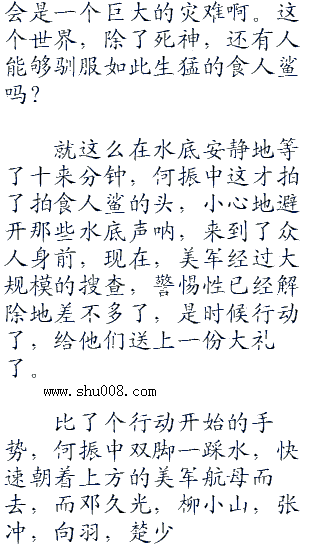 会是一个巨大的灾难啊。这
个世界，除了死神，还有人
能够驯服如此生猛的食人鲨
吗？
就这么在水底安静地等
了十来分钟，何振中这才拍
了拍食人鲨的头，小心地避
开那些水底声呐，来到了众
人身前，现在，美军经过大
规模的搜查，警惕性已经解
除地差不多了，是时候行动
了，给他们送上一份大礼
了。
www.shu008.com
比了个行动开始的手
势，何振中双脚一踩水，快
速朝着上方的美军航母而
去，而邓久光，柳小山，张
冲，向羽，楚少